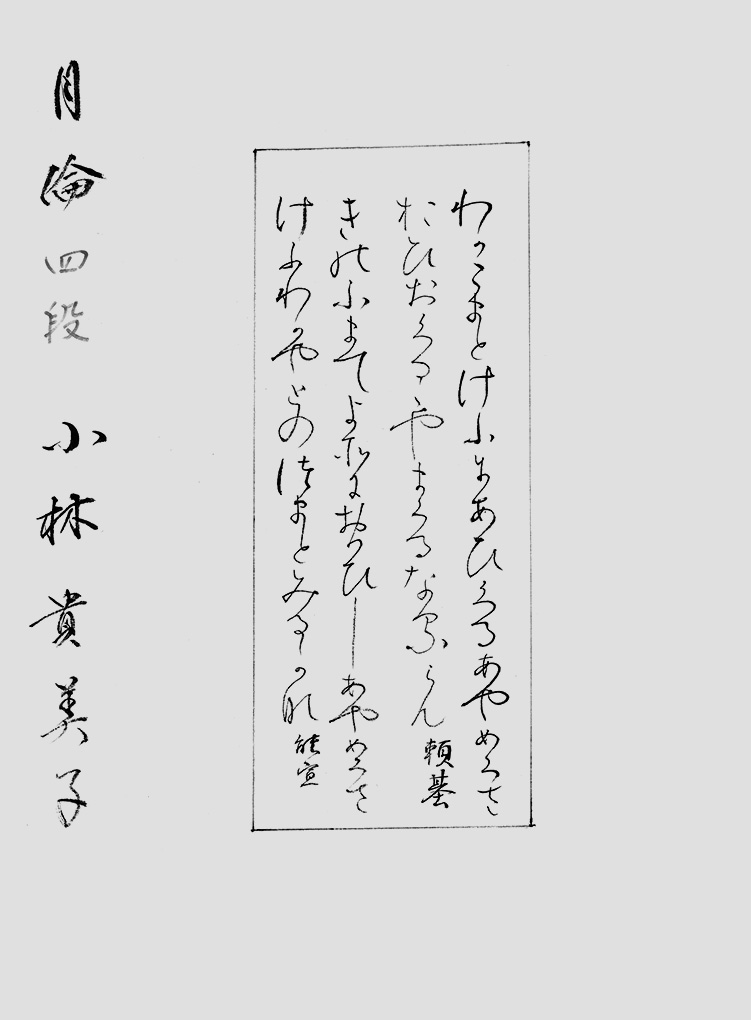 わかこまとけふにあひくるあやめくさ
おひおくるゝやまくるなるらん 頼基
きのふまてよそにおもひしあやめくさ
けふわかやとのつまとみるかな 能宣
月倫 四段 小林 貴美子